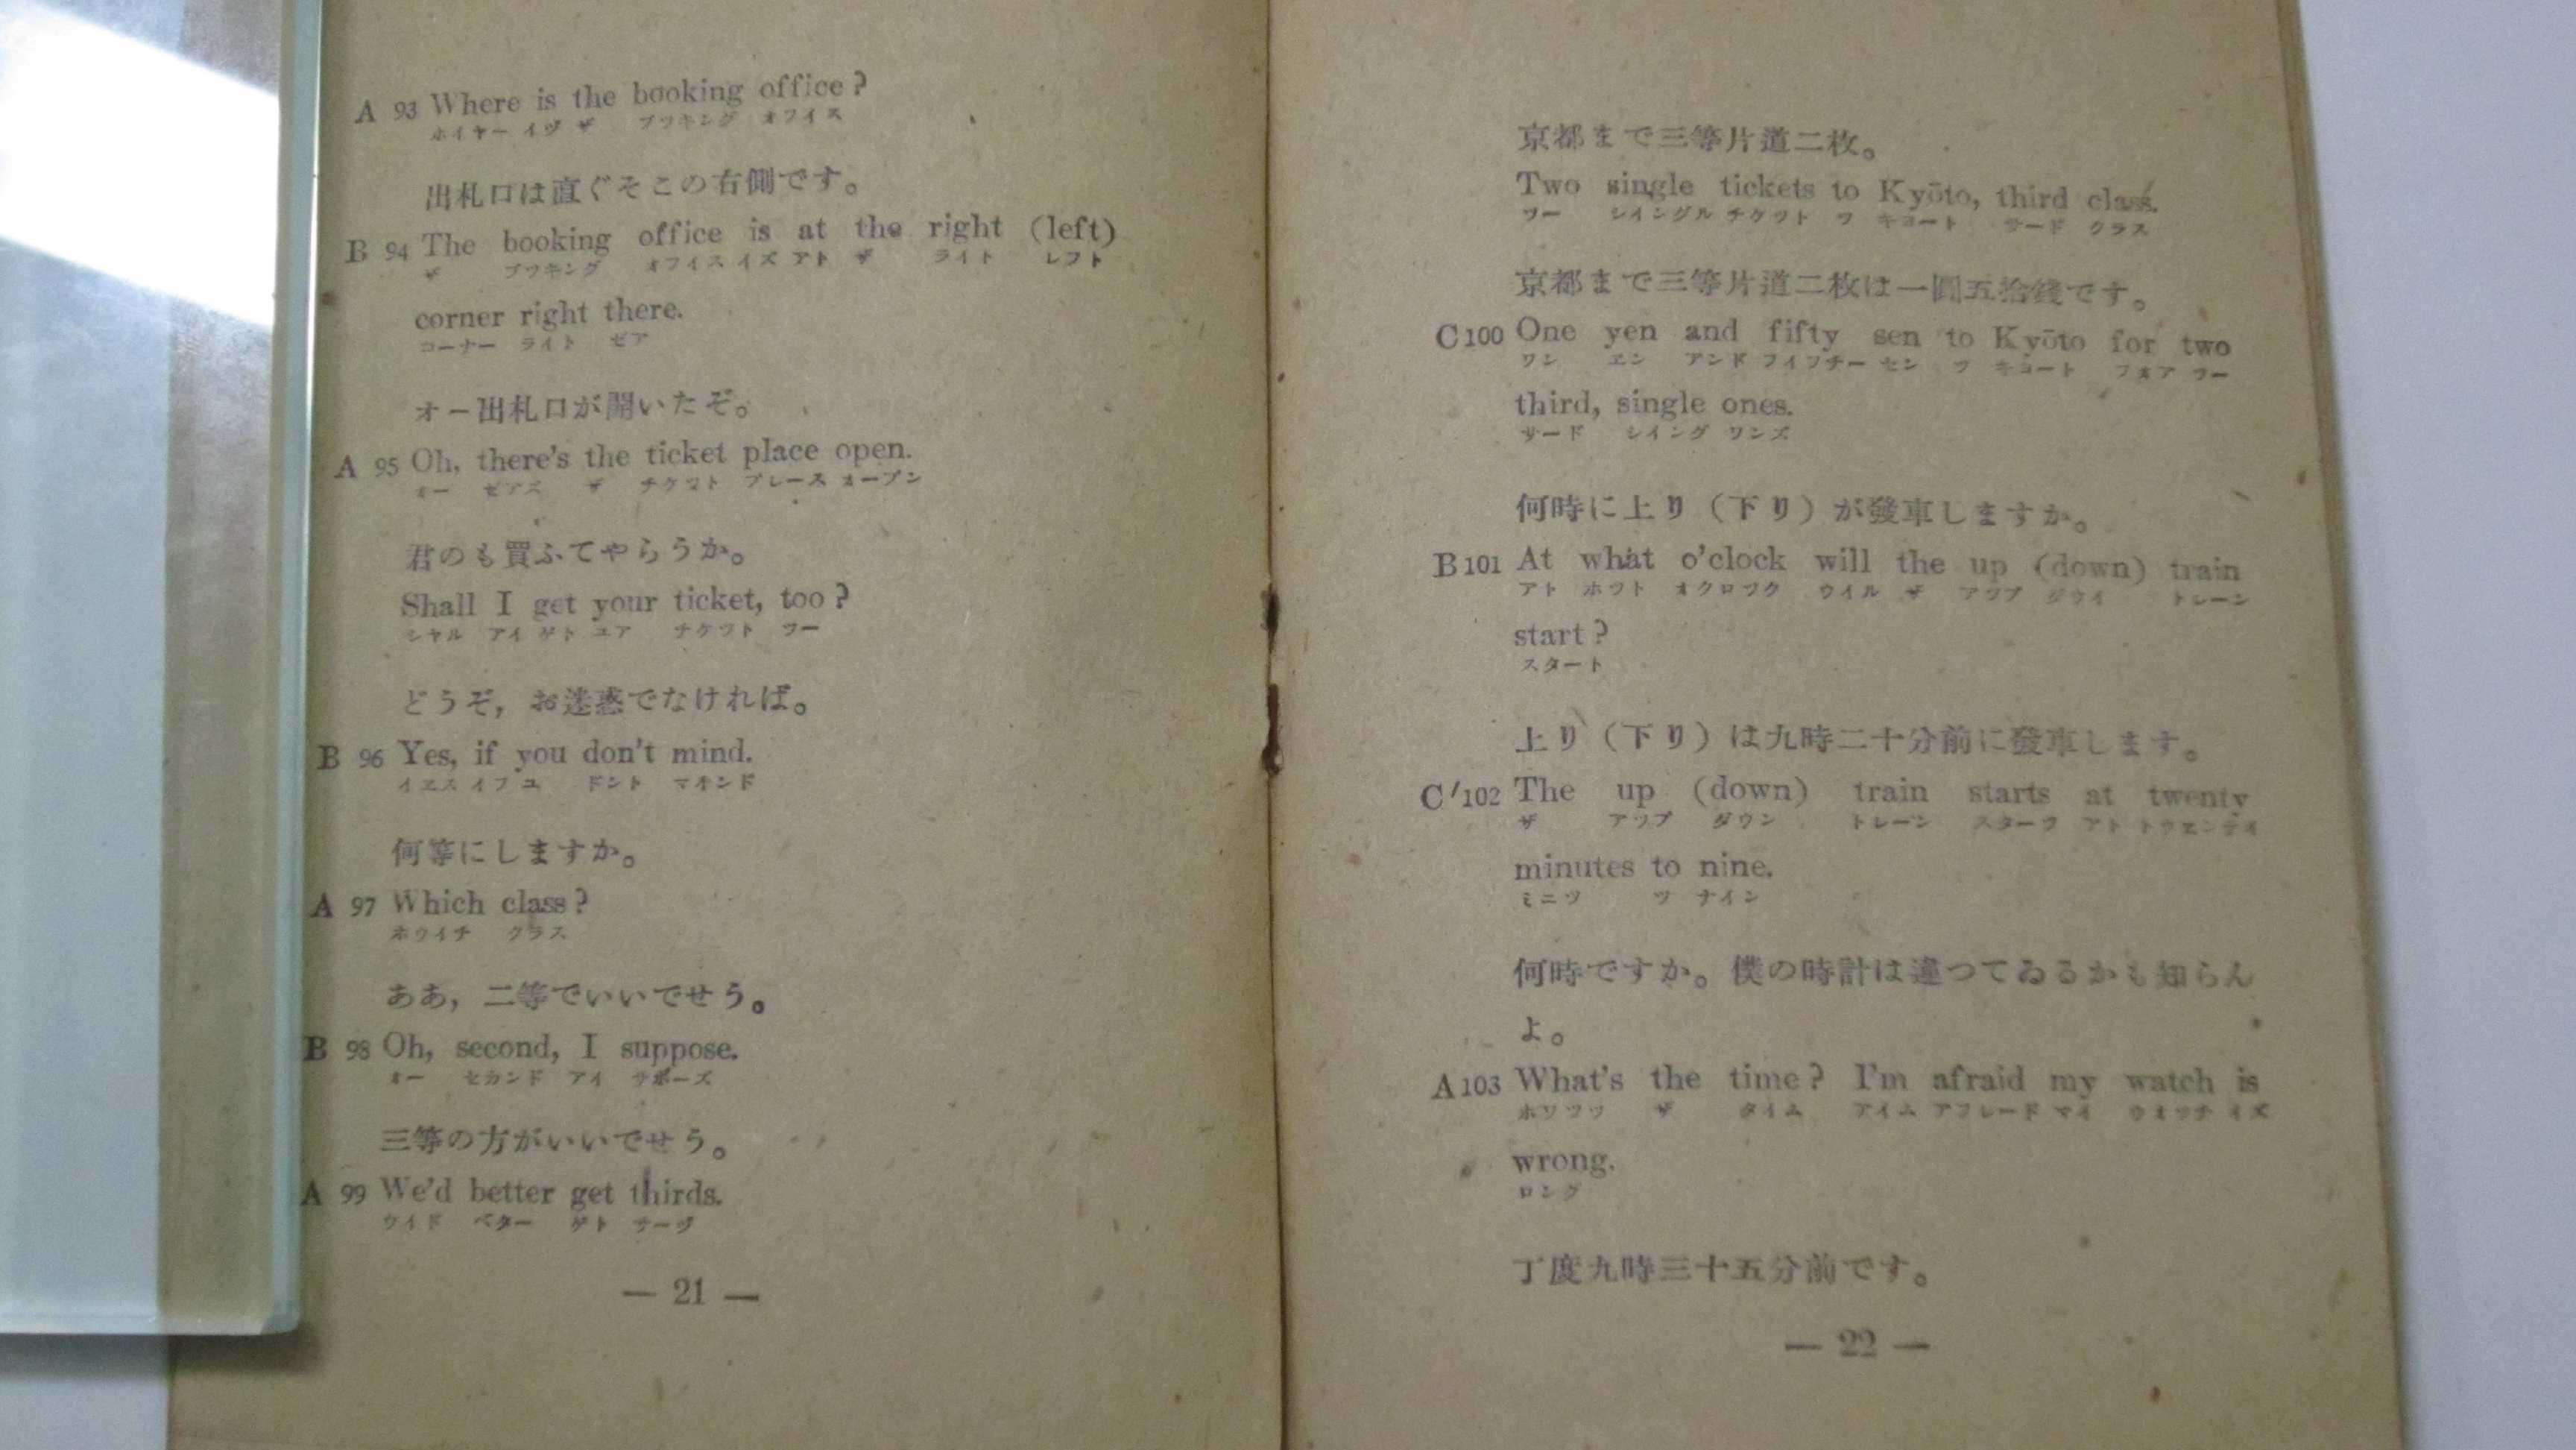 A 93 Where is the booking office?
ホイヤー イヅ ザ ブツキング オフイス
出札口は直ぐそこの右側です。
B 94 The booking office is at the right (left)
ザ ブツキング オフイス イズ アト ザ ライト レフト
corner right there.
コーナー ライト ゼア
オー出札口が開いたぞ。
A 95 Oh, there's the ticket place open.
オー ゼアズ ザ チケツト プレース オープン
君のも買ふてやらうか。
Shall I get your ticket, too?
シヤル アイ ゲト ユア チケツト ツー
どうぞ，お迷惑でなければ。
B 96 Yes, if you don't mind.
イエス イフ ユ ドント マキンド
何等にしますか。
A 97 Which class?
ホウイチ クラス
ああ，二等でいいでせう。
B 98 Oh, second, I suppose.
オー セカンド アイ サポーズ
三等の方がいいでせう。
A 99 We'd better get thirds.
ウイド ベター ゲト サーヅ
— 21 —
京都まで三等片道二枚。
Two single tickets to Kyōto, third class.
ツー シイングル チケツト ツ キヨート サード クラス
京都まで三等片道二枚は一圓五拾錢です。
C 100 One yen and fifty sen to Kyōto for two
ワン エン アンド フイフチー セン ツ キヨート フオア ツー
third, single ones.
サード シイング ワンズ
何時に上り（下り）が發車しますか。
B 101 At what o'clock will the up (down) train
アト ホツト オクロツク ウイル ザ アツプ ダウイ トレーン
start?
スタート
上り（下り）は九時二十分前に發車します。
C' 102 The up (down) train starts at twenty
ザ アツプ ダウン トレーン スターツ アト トウエンテイ
minutes to nine.
ミニツ ツ ナイン
何時ですか。僕の時計は違つてゐるかも知らん
よ。
A 103 What's the time? I'm afraid my watch is
ホワツツ ザ タイム アイム アフレード マイ ウオツチ イズ
wrong.
ロング
丁度九時三十五分前です。
— 22 —